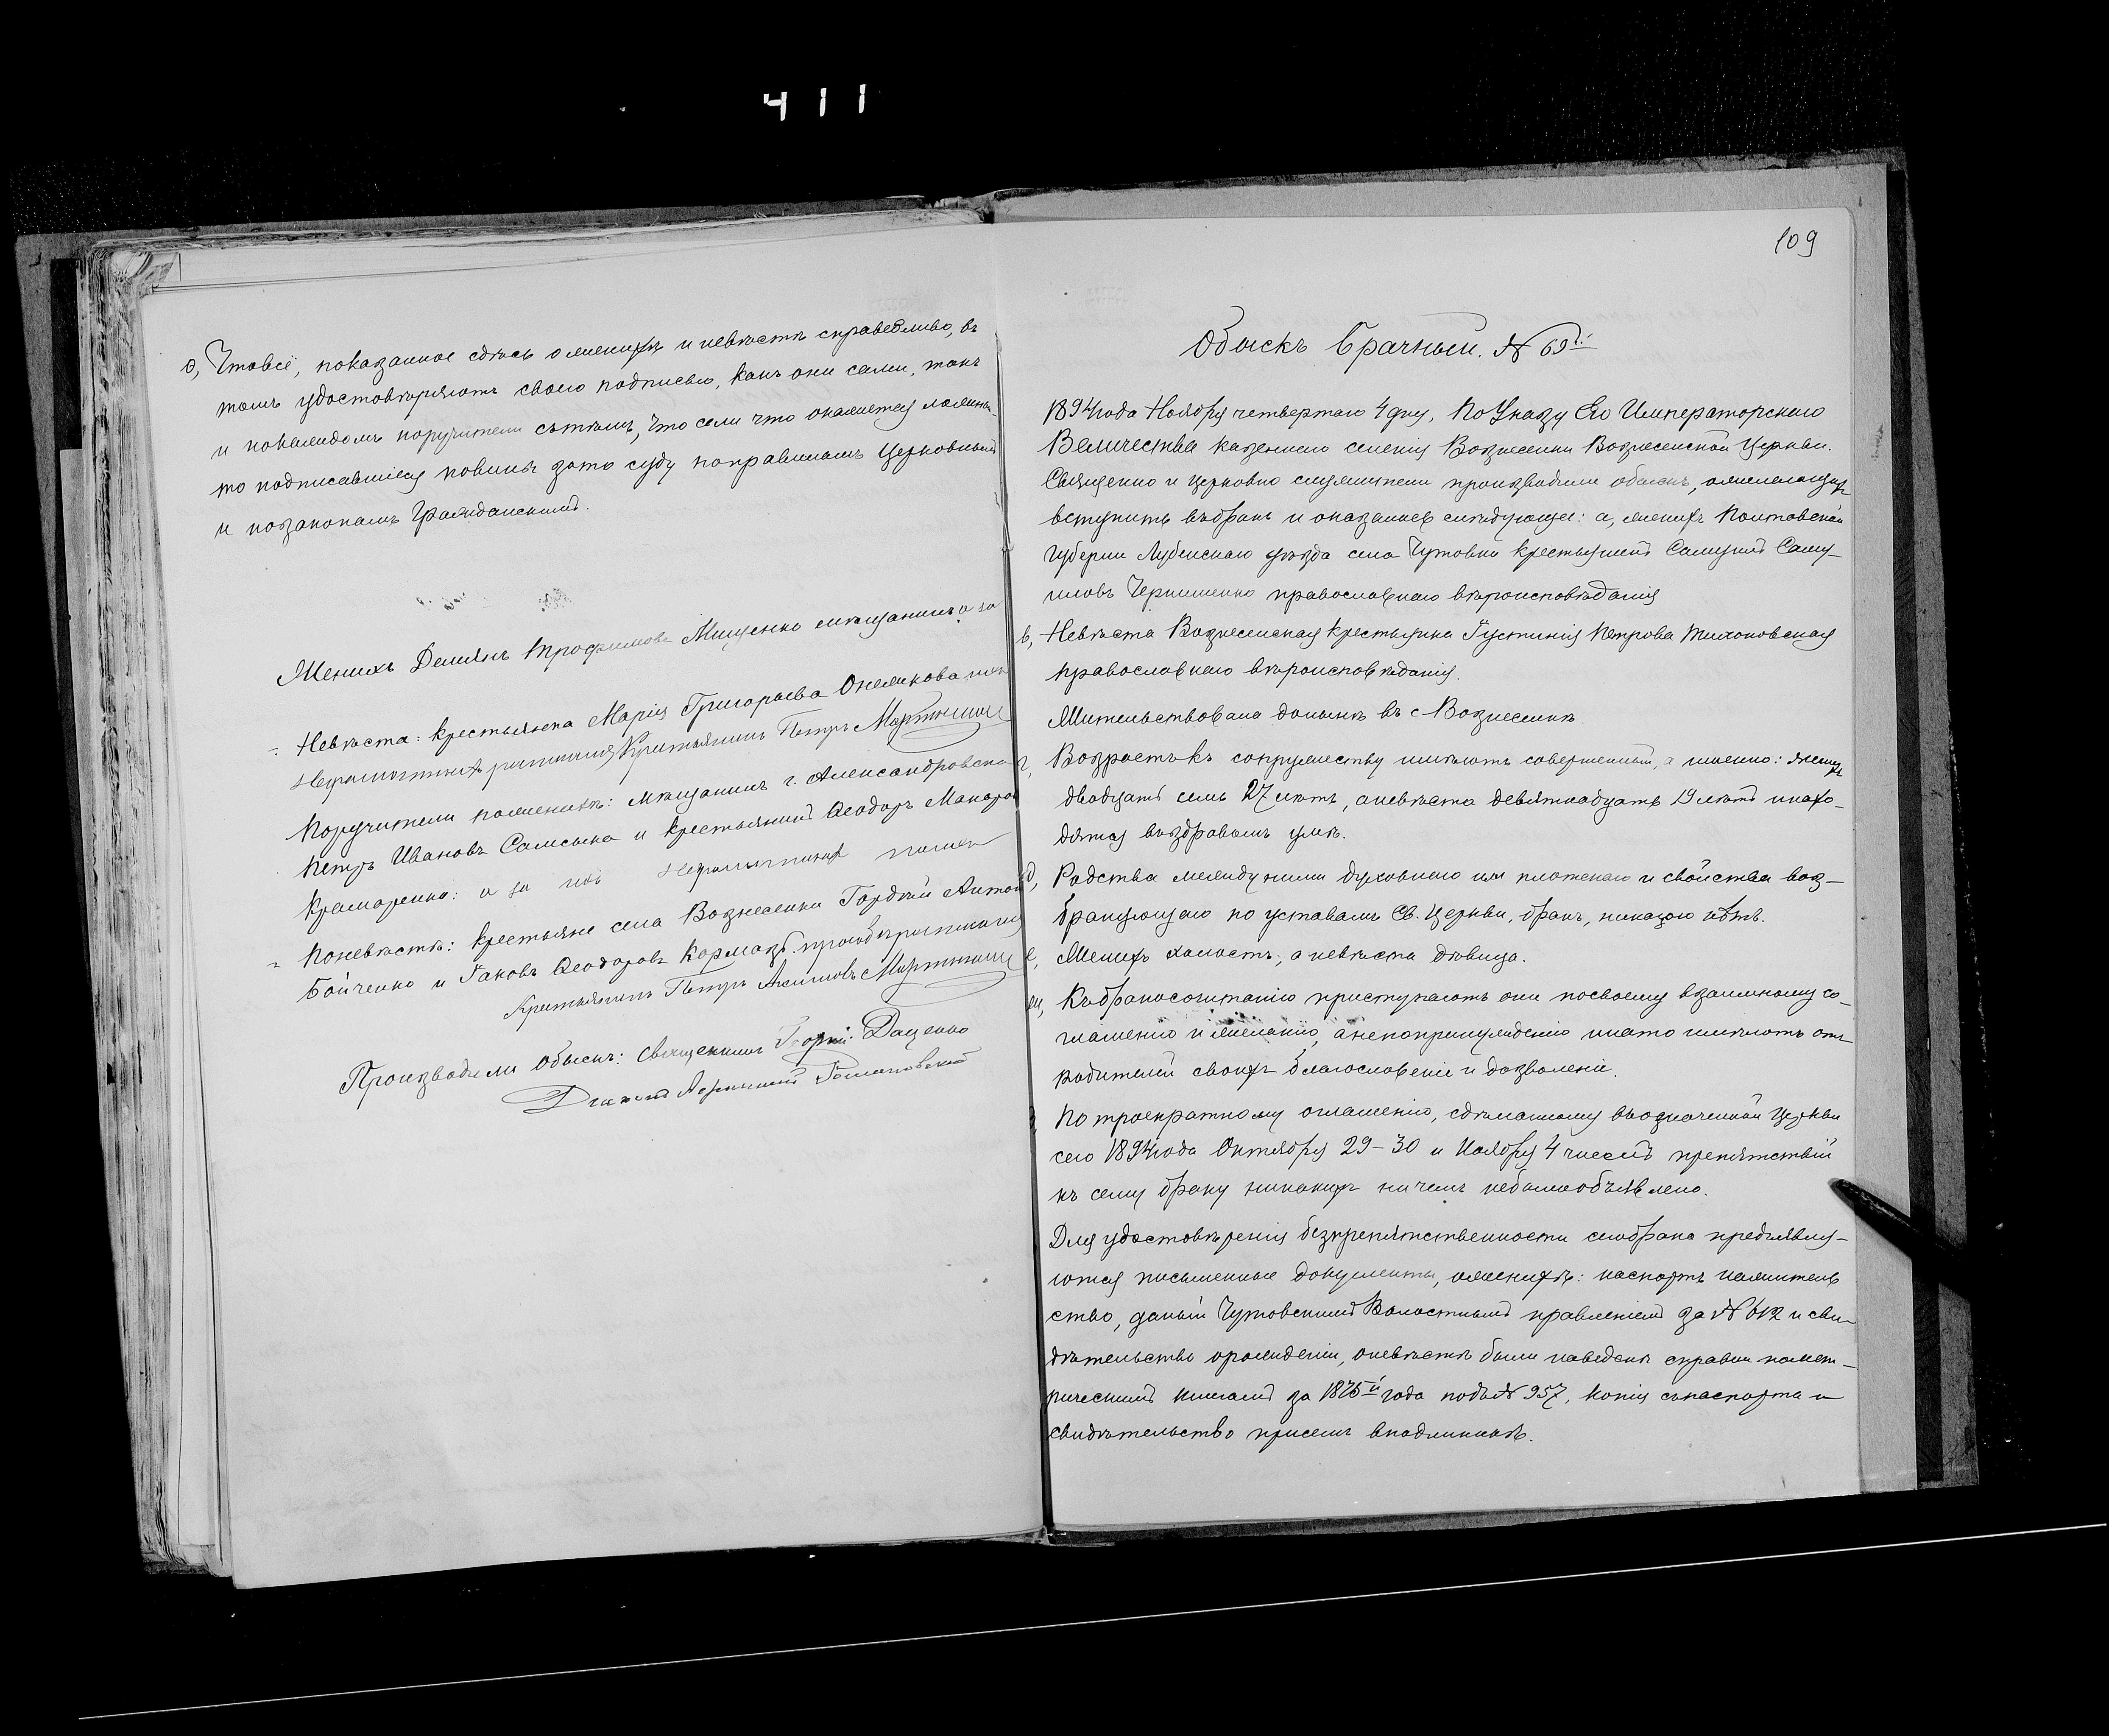 411
ѳ, Что всё, показанное сдѣсь о женихѣ и невѣстѣ справедливо, въ
томъ удостовѣряютъ своею подписью, какъ они сами, такъ
и по каждомъ поручители съ тѣмъ, что если что окажется ложнымъ
то подписавшіеся повины за то суду по правиламъ Церковнымъ
и по законамъ Гражданскимъ.
Женихъ Деміянъ Трофимовъ Мищенко мѣщанинъ а за
Невѣста: крестьянка Марія Григорьева Онежкова
неграмотныхъ росписался Крестьянинъ Петръ Мартыненко
Поручители по женихѣ: мѣщанинъ г. Александровска
Петръ Ивановъ Самсыка и крестьянинъ Ѳеодоръ Макаро
Крамаренко: а за неграмотныхъ
По невѣстѣ: крестьяне села Вознесенки Гордѣй Антон
Бойченко и Іаковъ Ѳеодоровъ Кармазь.
Крестьянинъ Петръ Мартыненко
Производили обыскъ: Священникъ Георгій Даценко
109
Обыскъ брачный. № 69й
1894 года Ноября четвертаго 4 дня, По Указу Его Императорскаго
Величества казеннаго селенія Вознесенки Вознесенской Церкви.
Священно и церковно служители производили обыскъ, о желающихъ
вступить въ бракъ и оказалось слѣдующее: а, женихъ Полтавской
губерніи Лубенскаго уѣзда села Чутовки крестьянинъ Самуилъ Саму-
иловъ Чернышенко православнаго вѣроисповѣданія
в, Невѣста Вознесенская крестьянка Іустинія Петрова Тихоновская
православнаго вѣроисповѣданія.
Жительствовала донынѣ въ с. Вознесенкѣ
г, Возрастъ къ супружеству имѣютъ совершенный, а именно: женихъ
двадцать семь 27 лѣтъ, а невѣста девятнадцать 19 лѣтъ и нахо-
дятся въ здравомъ умѣ.
д, Родства между ними духовнаго или плотскаго и свойства воз-
браняющаго по уставамъ Св. Церкви, бракъ, никакого нѣтъ.
е, Женихъ холостъ, а невѣста дѣвица.
ж, Къ бракосочитанію приступаютъ они по своему взаимному со-
глашенію и желанію, а не по принужденію и на то имѣютъ отъ
родителей своихъ благословеніе и дозволеніе.
По троекратному оглашенію, сдѣланному въ означенной Церкви
сего 1894 года Октября 29-30 и Ноября 4 чиселъ препятствій
къ сему браку никакихъ ни чемъ не было объявлено.
Для удостовѣренія безпрепятственности сего брака предъявля-
ются письменные документы, о женихѣ: паспортъ на житель
ство, даный Чутовскимъ Волостнымъ правленіемъ за № 612 и сви-
дѣтельство о рожденіи, о невѣстѣ были наведенѣ справки по мет-
рическимъ книгамъ за 1875й года подъ № 957, копія съ паспорта и
свидѣтельство при семъ в подлинникѣ.